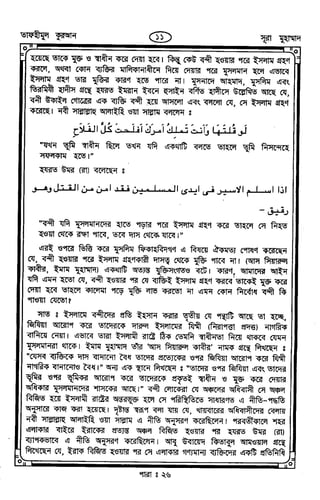 তাফহীমুল কুরআন
১১
সূরা মুহাম্মাদ
হয়েছে তাকে মুক্ত ও স্বাধীন করে দেয়া হবে। কিন্তু কেউ বন্দী হওয়ার পরে ইসলাম গ্রহণ
করলে, অথবা কোন ব্যক্তির মালিকানাধীনে দিয়ে দেয়ার পরে মুসলমান হলে এভাবে
ইসলাম গ্রহণ তার মুক্তির কারণ হতে পারে না। মুসনাদে আহমাদ, মুসলিম এবং
তিরমিযী হাদীস গ্রন্থে হযরত ইমরান ইবনে হুসাইন বর্ণিত হাদীসে উল্লেখিত আছে যে,
বনী উকাইল গোত্রের এক ব্যক্তি বন্দী হয়ে আসলো এবং বললো যে, সে ইসলাম গ্রহণ
করেছে। নবী সাল্লাল্লাহু আলাইহি ওয়া সাল্লাম বললেন :
لو قلتها وأنت تملك أمرك أفلحت كل الفلاح
"যখন তুমি স্বাধীন ছিলে তখন যদি একথাটি বলতে তাহলে তুমি নিসন্দেহে
সফলকাম হতে।"
হযরত উমর (রা) বলেছেন :
اذا اسلم الاسير فى ايدى المسلمين فقد امن من القتل وهو
رقيق -
"বন্দী যদি মুসলমানদের হাতে পড়ার পরে ইসলাম গ্রহণ করে তাহলে সে নিহত
হওয়া থেকে রক্ষা পাবে, তবে দাস থেকে যাবে।"
এরই ওপরে ভিত্তি করে মুসলিম ফিকাহবিদগণ এ বিষয়ে ঐকমত্য পোষণ করেছেন
যে, বন্দী হওয়ার পরে ইসলাম গ্রহণকারী দাসত্ব থেকে মুক্তি পাবে না। (আস সিয়ারুল
কাবীর, ইমাম মুহাম্মাদ) একথাটি অত্যন্ত যুক্তিসংগতও বটে। কারণ, আমাদের আইন
যদি এমন হতো যে, বন্দী হওয়ার পর যে ব্যক্তিই ইসলাম গ্রহণ করবে তাকেই মুক্ত করে
দেয়া হবে তাহলে কালেমা পড়ে মুক্তি লাভ করতো না এমন কোন নির্বোধ বন্দী কি
পাওয়া যেতো?
সাত : ইসলামে বন্দীদের প্রতি ইহসান করার তৃতীয় যে পন্থাটি আছে তা হচ্ছে,
জিযিয়া আরোপ করে তাদেরকে দারুল ইসলামের যিম্মী (নিরাপত্তা প্রদত্ত) নাগরিক
বানিয়ে নেয়া। এভাবে তারা ইসলামী রাষ্ট্রে ঠিক তেমনি স্বাধীনতা নিয়ে থাকবে যেমন
মুসলমানরা থাকে। ইমাম মুহাম্মাদ তাঁর 'আস সিয়ারুল কাবীর' নামক গ্রন্থে লিখছেন :
"যেসব ব্যক্তিকে দাস বানানো বৈধ তাদের প্রত্যেকের ওপর জিযিয়া আরোপ করে যিম্মী
নাগরিক বানানোও বৈধ।" অন্য এক স্থানে লিখছেন : "তাদের ওপর জিযিয়া এবং তাদের
ভূমির ওপর ভূমিকর আরোপ করে তাদেরকে প্রকৃতই স্বাধীন ও মুক্ত করে দেয়ার
অধিকার মুসলমানদের শাসকের আছে।" বন্দী লোকেরা যে অঞ্চলের অধিবাসী সে অঞ্চল
বিজিত হয়ে ইসলামী রাষ্ট্রের অন্তরভুক্ত হলে সে পরিস্থিতিতে সাধারণত এ নীতি-পদ্ধতি
অনুসারে কাজ করা হয়েছে। দৃষ্টান্ত স্বরূপ বলা যায় যে, খায়বারের অধিবাসীদের বেলায়
নবী সাল্লাল্লাহু আলাইহি ওয়া সাল্লাম এ নীতি অনুসরণ করেছিলেন। পরবর্তীকালে শহর
এলাকার বাইরে ইরাকের প্রত্যন্ত অঞ্চল বিজিত হওয়ার পর হযরত উমর (রা)
ব্যাপকভাবে এ নীতি অনুসরণ করেছিলেন। আবু উবায়েদ কিতাবুল আমওয়াল গ্রন্থে
লিখেছেন যে, ইরাক বিজিত হওয়ার পর সে এলাকার গণ্যমান্য ব্যক্তিদের একটি প্রতিনিধি
পারা : ২৬